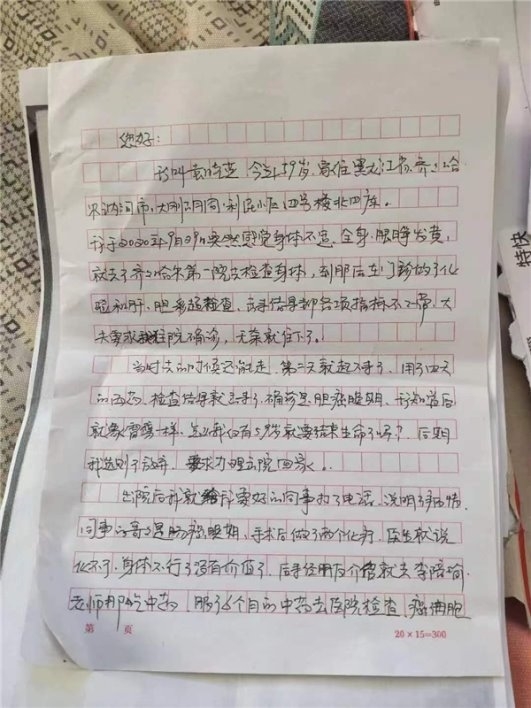 您好：
我叫 今年59岁，家住黑龙江省齐齐哈
尔讷河市 利民小区四号楼北四库。
我于2020年9月29日突然感觉身体不适，全身、眼睁发黄，
就去了齐齐哈尔第一医院检查身体，到那后在门诊做了化
验和肝、胆彩超检查，出来结果都各项指标不正常，大
夫要求我住院确诊，无奈就住下了。
当时去的时候还能走，第二天就起不来了，用了四天
的西药，检查结果就出来了，确诊是胆癌晚期，我知道后
就象雷霹一样，怎么我仅有59岁就要结束生命了吗？后期
我选则了放弃，要求办理出院回家。
出院后我就给我要好的同事打了电话，说明了病情，
同事 哥哥是肠癌晚期，手术后做了两个化疗，医生就说
化不了，身体不行了没有价值了，后来经朋友介绍就去李
老师那吃中药，服了6个月的中药去医院检查，癌细胞
第 页
20×15=300